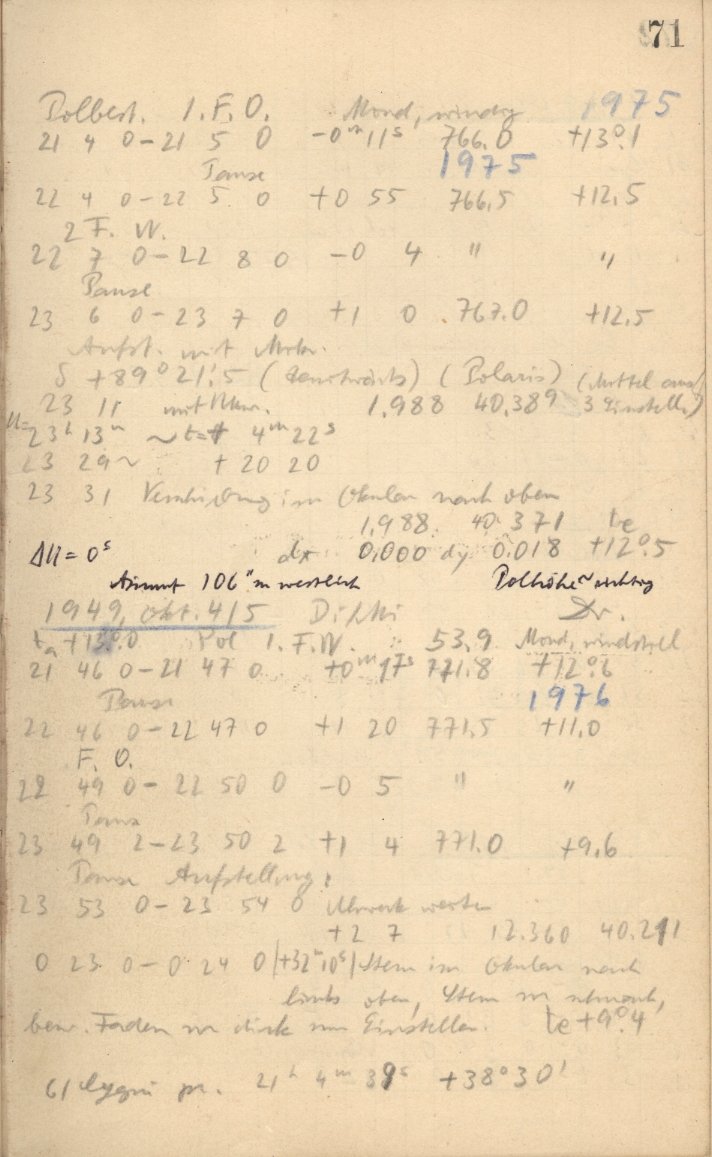 71
Polbest. I. F. O. Mond, windig 1975
21 4 0 – 21 5 0 -0ᵐ 11ˢ 766.0 +13°.1
Pause 1975
22 4 0 – 22 5 0 +0 55 766,5 +12,5
2 F. W.
22 7 0 – 22 8 0 -0 4 " "
Pause
23 6 0 – 23 7 0 +1 0 767.0 +12.5
Aufst. mit Mikr.
δ +89°21'.5 (zenitwärts) (Polaris) (Mittel aus
23 11 mit Mikr. 1.988 40.389 3 Einstell.)
23ʰ 13ᵐ ~ t = 4ᵐ 22ˢ
23 29 ~ + 20 20
23 31 Verschiebung im Okular nach oben
1,988. 40.371 te
ΔU = 0ˢ dx 0,000 dy 0.018 +12°.5
Azimut 106" zu westlich Polhöhe ~ richtig
1949, Okt. 4/5 Di/Mi Dr.
ta +13°.0 Pol I. F. W. 53,9 Mond, windstill
21 46 0 – 21 47 0 +0ᵐ 17ˢ 771.8 +12°.6
Pause 1976
22 46 0 – 22 47 0 +1 20 771.5 +11.0
F. O.
22 49 0 – 22 50 0 -0 5 " "
Pause
23 49 2 – 23 50 2 +1 4 771.0 +9.6
Pause Aufstellung:
23 53 0 – 23 54 0 Uhrwerk
+2 7 12.360 40.211
0 23 0 – 0 24 0 (+32ᵐ 10ˢ) Stern im Okular nach
links oben, Stern zu schwach,
bezw. Faden zu dick zum Einstellen. te +9°.4
61 Cygni pr. 21ʰ 4ᵐ 39ˢ +38°30'